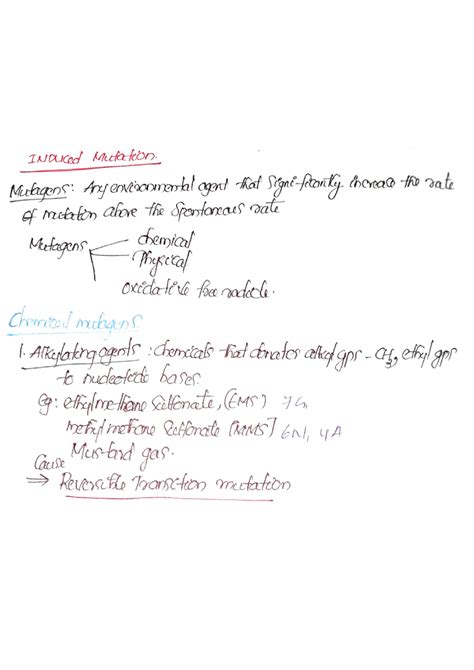 INDUCED Mutation.
Mutagens: Any environmental agent that significantly increase the rate
of mutation above the spontaneous rate
Mutagens chemical
Physical
oxidative free radicle.
Chemical mutagens
1. Alkylating agents : chemicals that donates alkyl gps - CH3, ethyl gps
to nucleotide bases.
Eg: ethylmethane sulfonate, (EMS)
methyl methane sulfonate [MMS]
Mustard gas.
Cause
⇒ Reversible Transition mutation